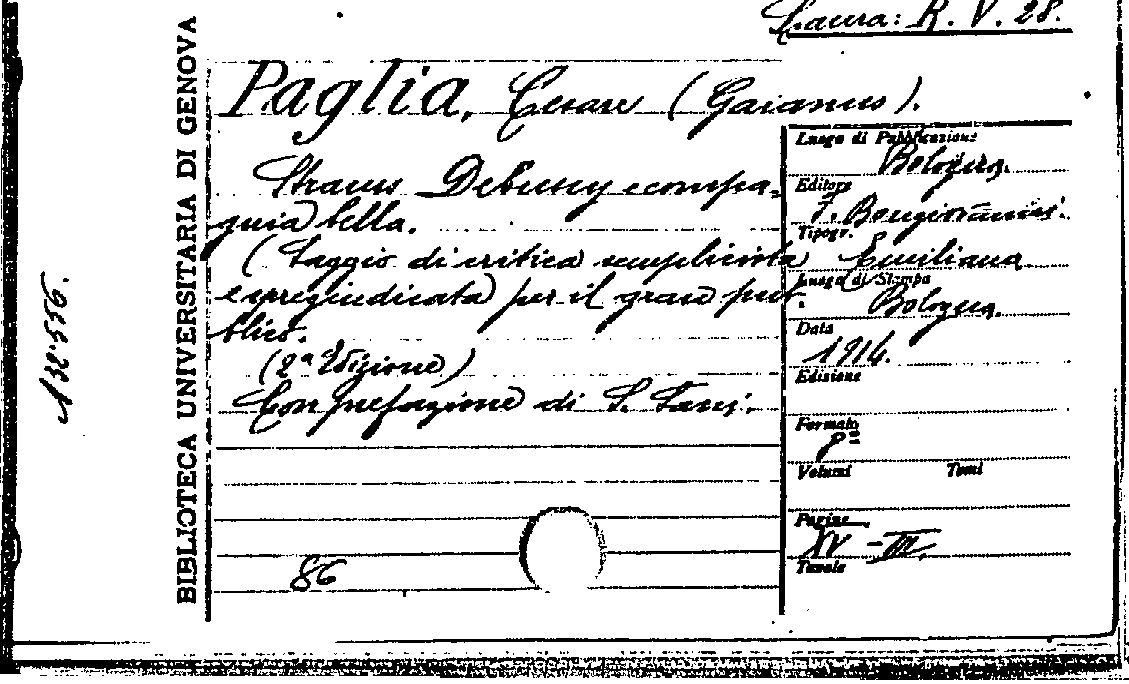 Laura: R. V. 28.
BIBLIOTECA UNIVERSITARIA DI GENOVA
132.556.
Paglia, Cesare (Gaianus).
Strauss Debussy e compa-
gnia bella.
(Saggio di critica semplicista
e spregiudicata) per il gran pub-
blico.
(2ª Edizione)
Con prefazione di
86
Luogo di Pubblicazione
Bologna.
Editore
F. Bongiovanni.
Tipogr.
Emiliana
Luogo di Stampa
Bologna.
Data
1914.
Edizione
Formato
8º
Volumi Tomi
Pagine
XV - III.
Tavole